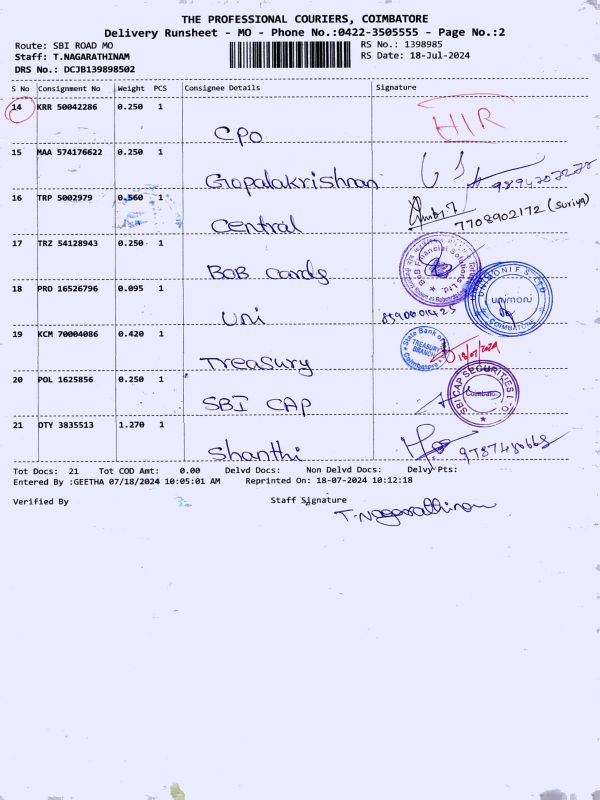 THE PROFESSIONAL COURIERS, COIMBATORE
Delivery Runsheet - MO - Phone No.:0422-3505555 - Page No.:2
Route: SBI ROAD MO RS No.: 1398985
Staff: T.NAGARATHINAM RS Date: 18-Jul-2024
DRS No.: DCJB139898502
S No Consignment No Weight PCS Consignee Details Signature
14 KRR 50042286 0.250 1
CPO HIR
15 MAA 574176622 0.250 1
Gopalakrishnan
16 TRP 5002979 0.560 1
Central 7708902172 (Suriya)
17 TRZ 54128943 0.250 1
BOB Cards
18 PRO 16526796 0.095 1
Uni 8590001425
19 KCM 70004086 0.420 1
Treasury State Bank of TREASURY BRANCH Coimbatore 18/07/2024
20 POL 1625856 0.250 1
SBI CAP SBI CAP SECURITIES
21 OTY 3835513 1.270 1
Shanthi
Tot Docs: 21 Tot COD Amt: 0.00 Delvd Docs: Non Delvd Docs: Delvy Pts:
Entered By :GEETHA 07/18/2024 10:05:01 AM Reprinted On: 18-07-2024 10:12:18
Verified By Staff Signature
T.Nagarathinam